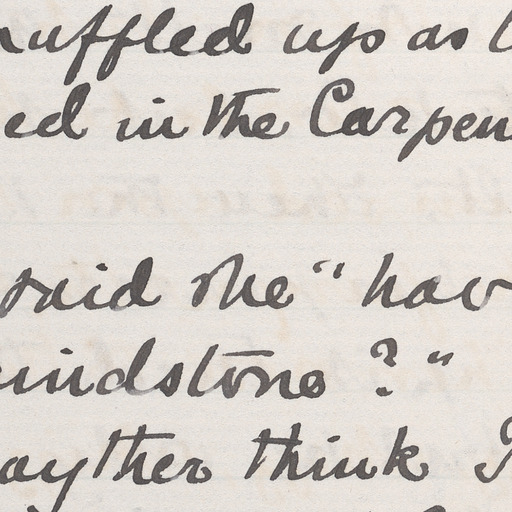 uffled up as
ed in the Carpen
said she " hav
indstone ? "
ayther think I